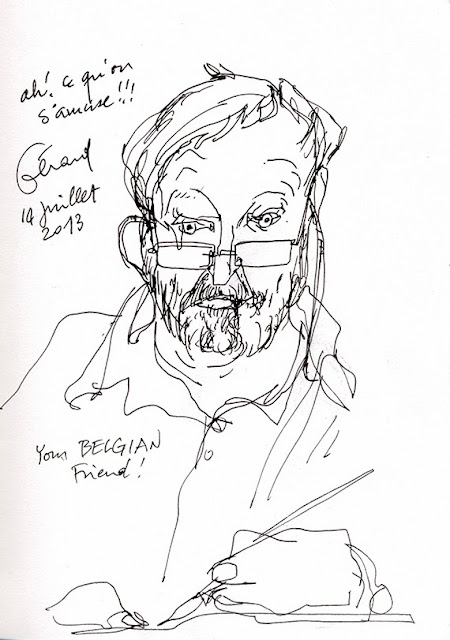 ah! ce qu'on
s'amuse!!!
Gérard
14 juillet
2013
Your BELGIAN
Friend!